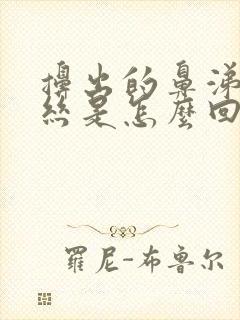 擤出的鼻涕
絲是怎麼回
羅尼-布魯尔